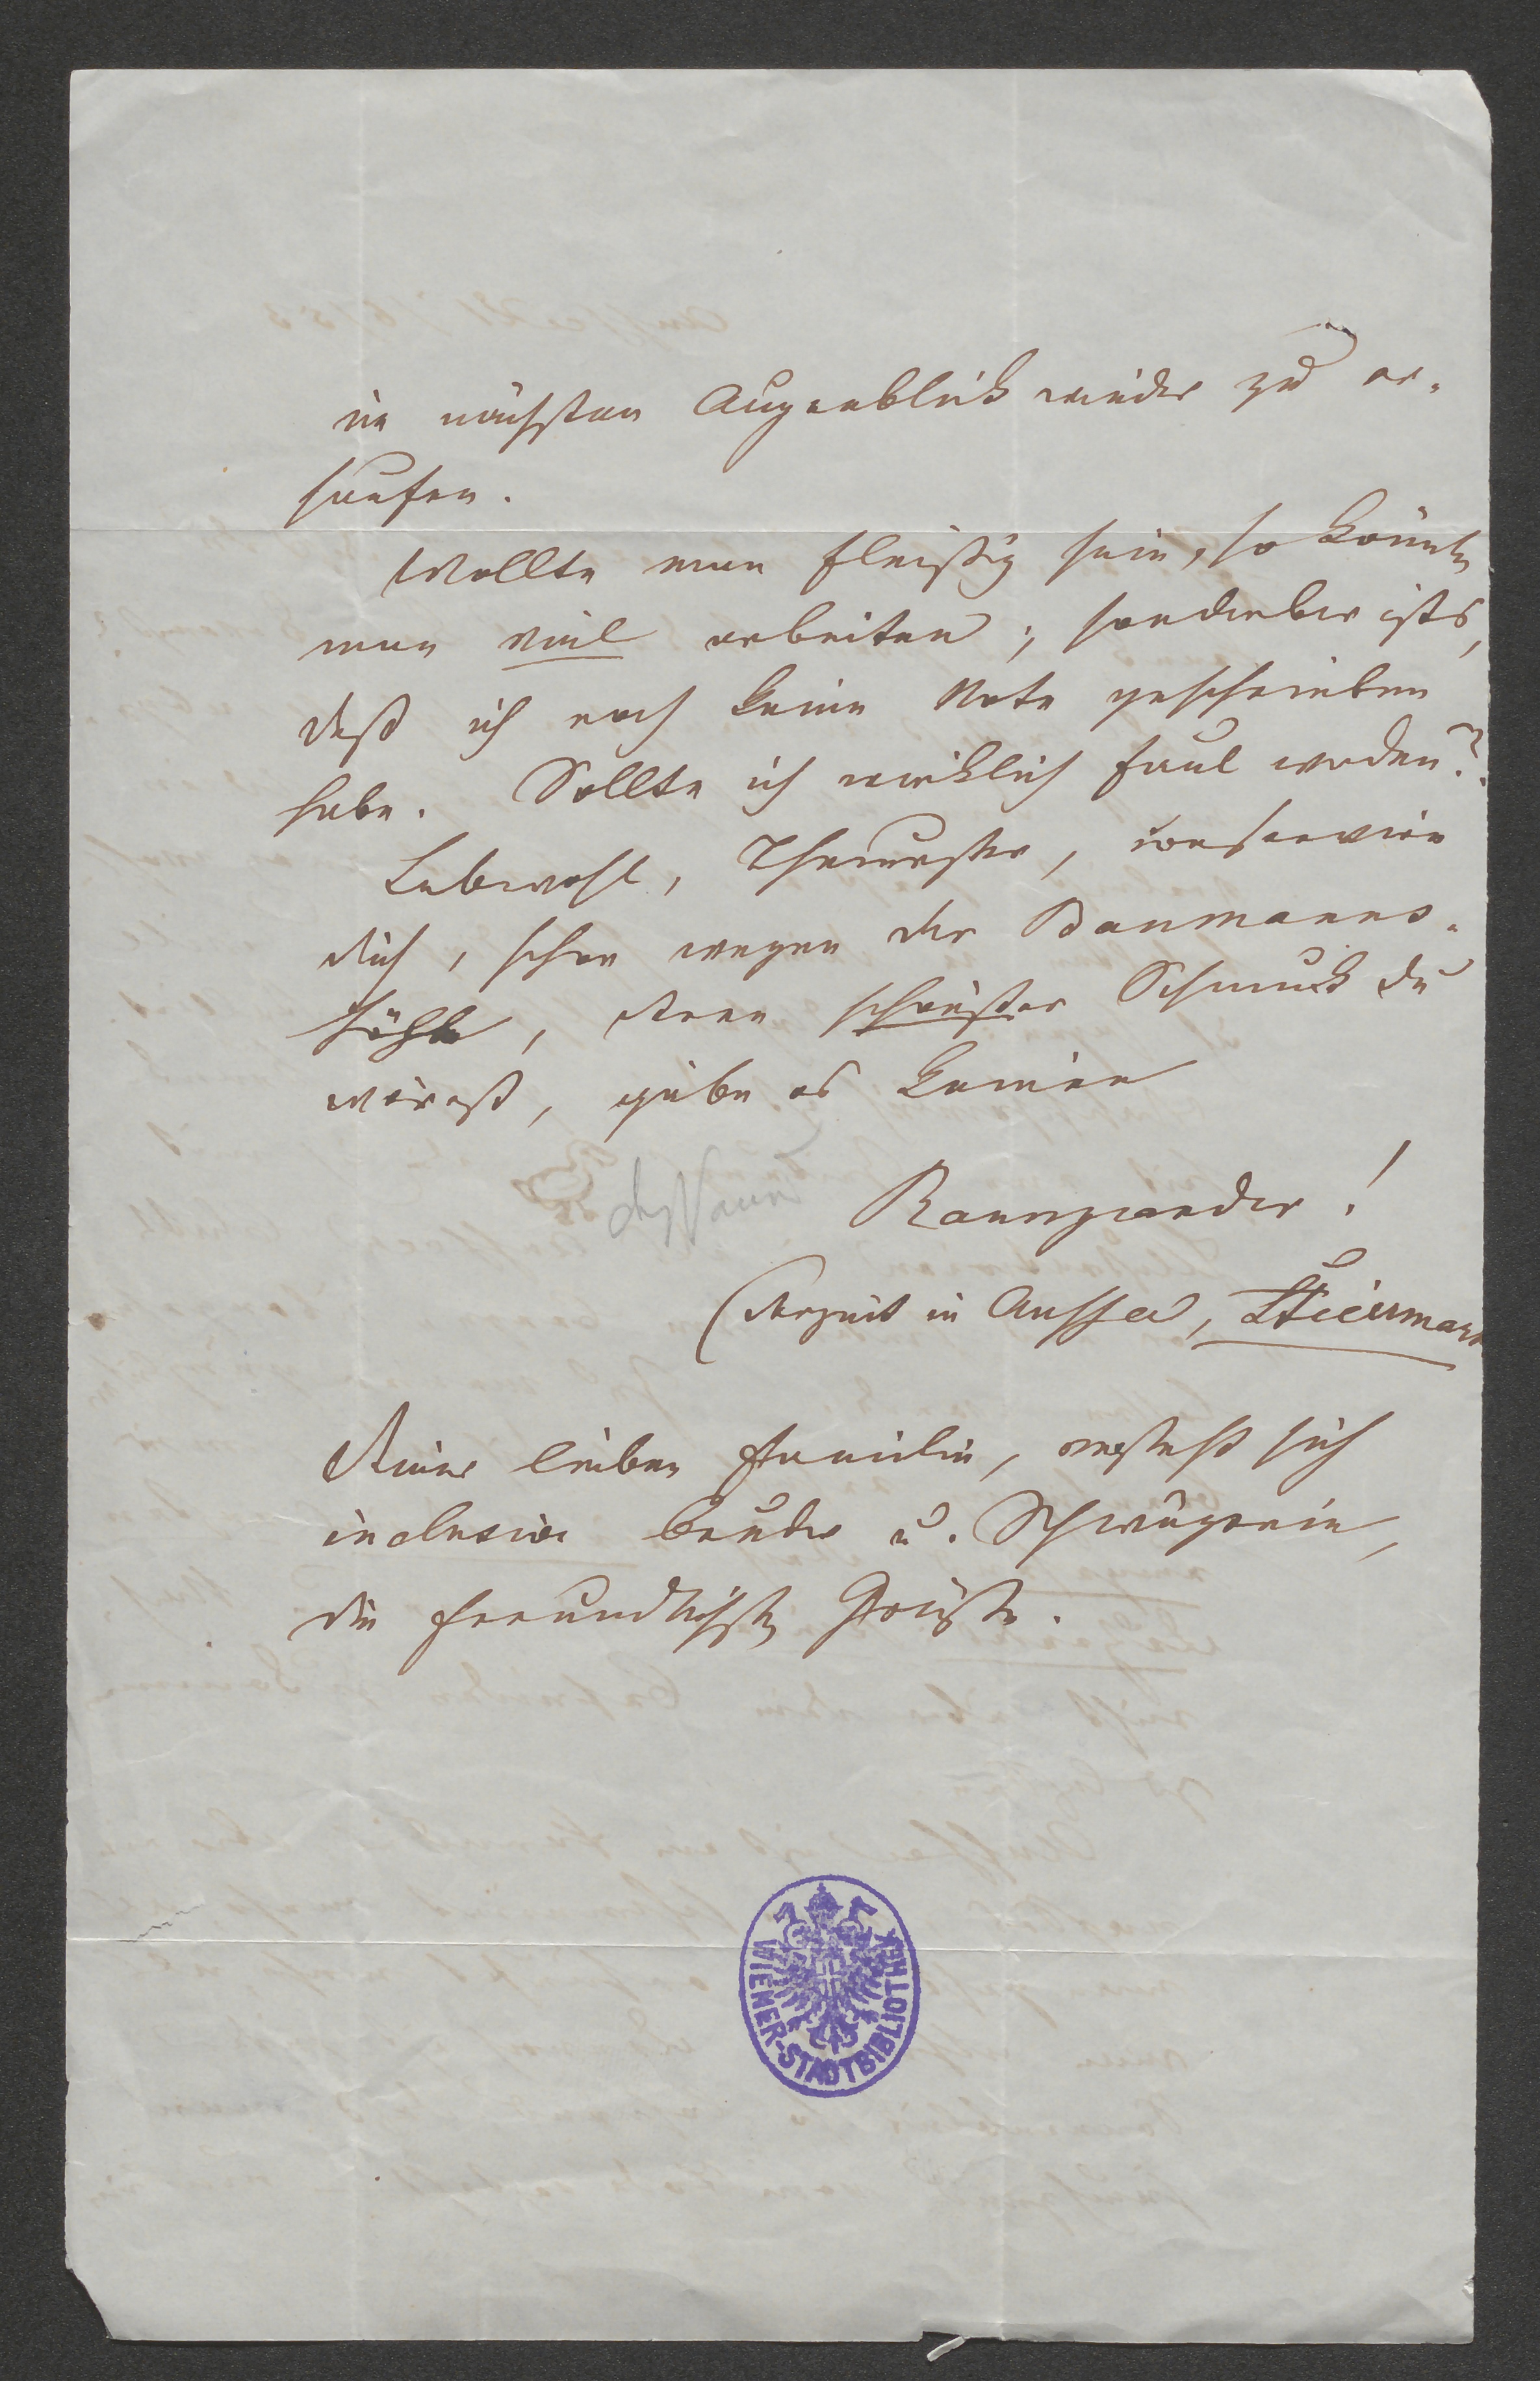 im nächsten Augenblick wieder zu er-
saufen.
Wollte man fleißig sein, so könnte
man viel arbeiten; sonderbar ists,
daß ich noch keine Note geschrieben
habe. Sollte ich wirklich faul werden?
Lebwohl, Theuerster, conservire
dich, schon wegen der Baumanns-
höhle, deren schönster Schmuck du
wärest, gäbe es keinen
Dessauer
(derzeit in Aussee, Steiermark
Deiner lieben Familie, versteht sich
inclusive Bruder u. Schwägerin,
die freundlichsten Grüße.
WIENER-STADTBIBLIOTHEK